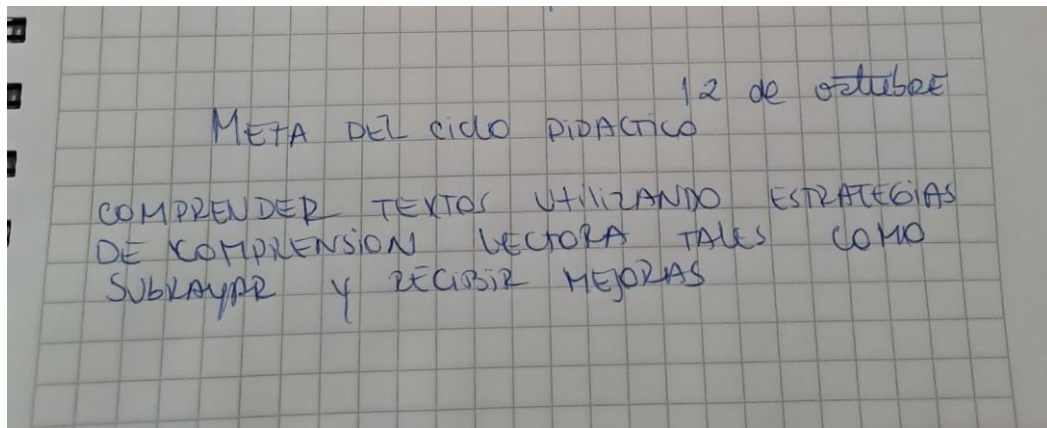 12 de octubre
META DEL ciclo DIDACTICO
COMPRENDER TEXTOS UtiliZANDO ESTRATEGIAS
DE COMPRENSION LECTORA TALES COMO
SUBRAYAR Y RECIBIR MEJORAS